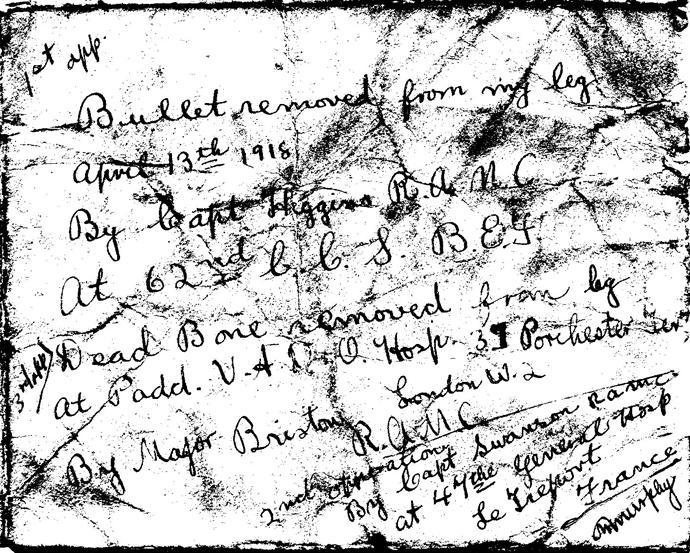 1st opp.
Bullet removed from my leg
April 13th 1918
By Capt Higgins R.A.M.C
At 62nd C.C.S. B.E.F
Dead Bone removed from leg
at Padd. V.A.D. O. Hosp. 31 Porchester
London W.2
By Major Briston R.A.M.C.
2nd operation
By Capt Swanson RAMC
at 47th General Hosp
Le Treport
France